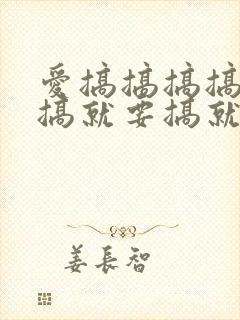 愛搞搞搞搞
搞就要搞就
姜長智